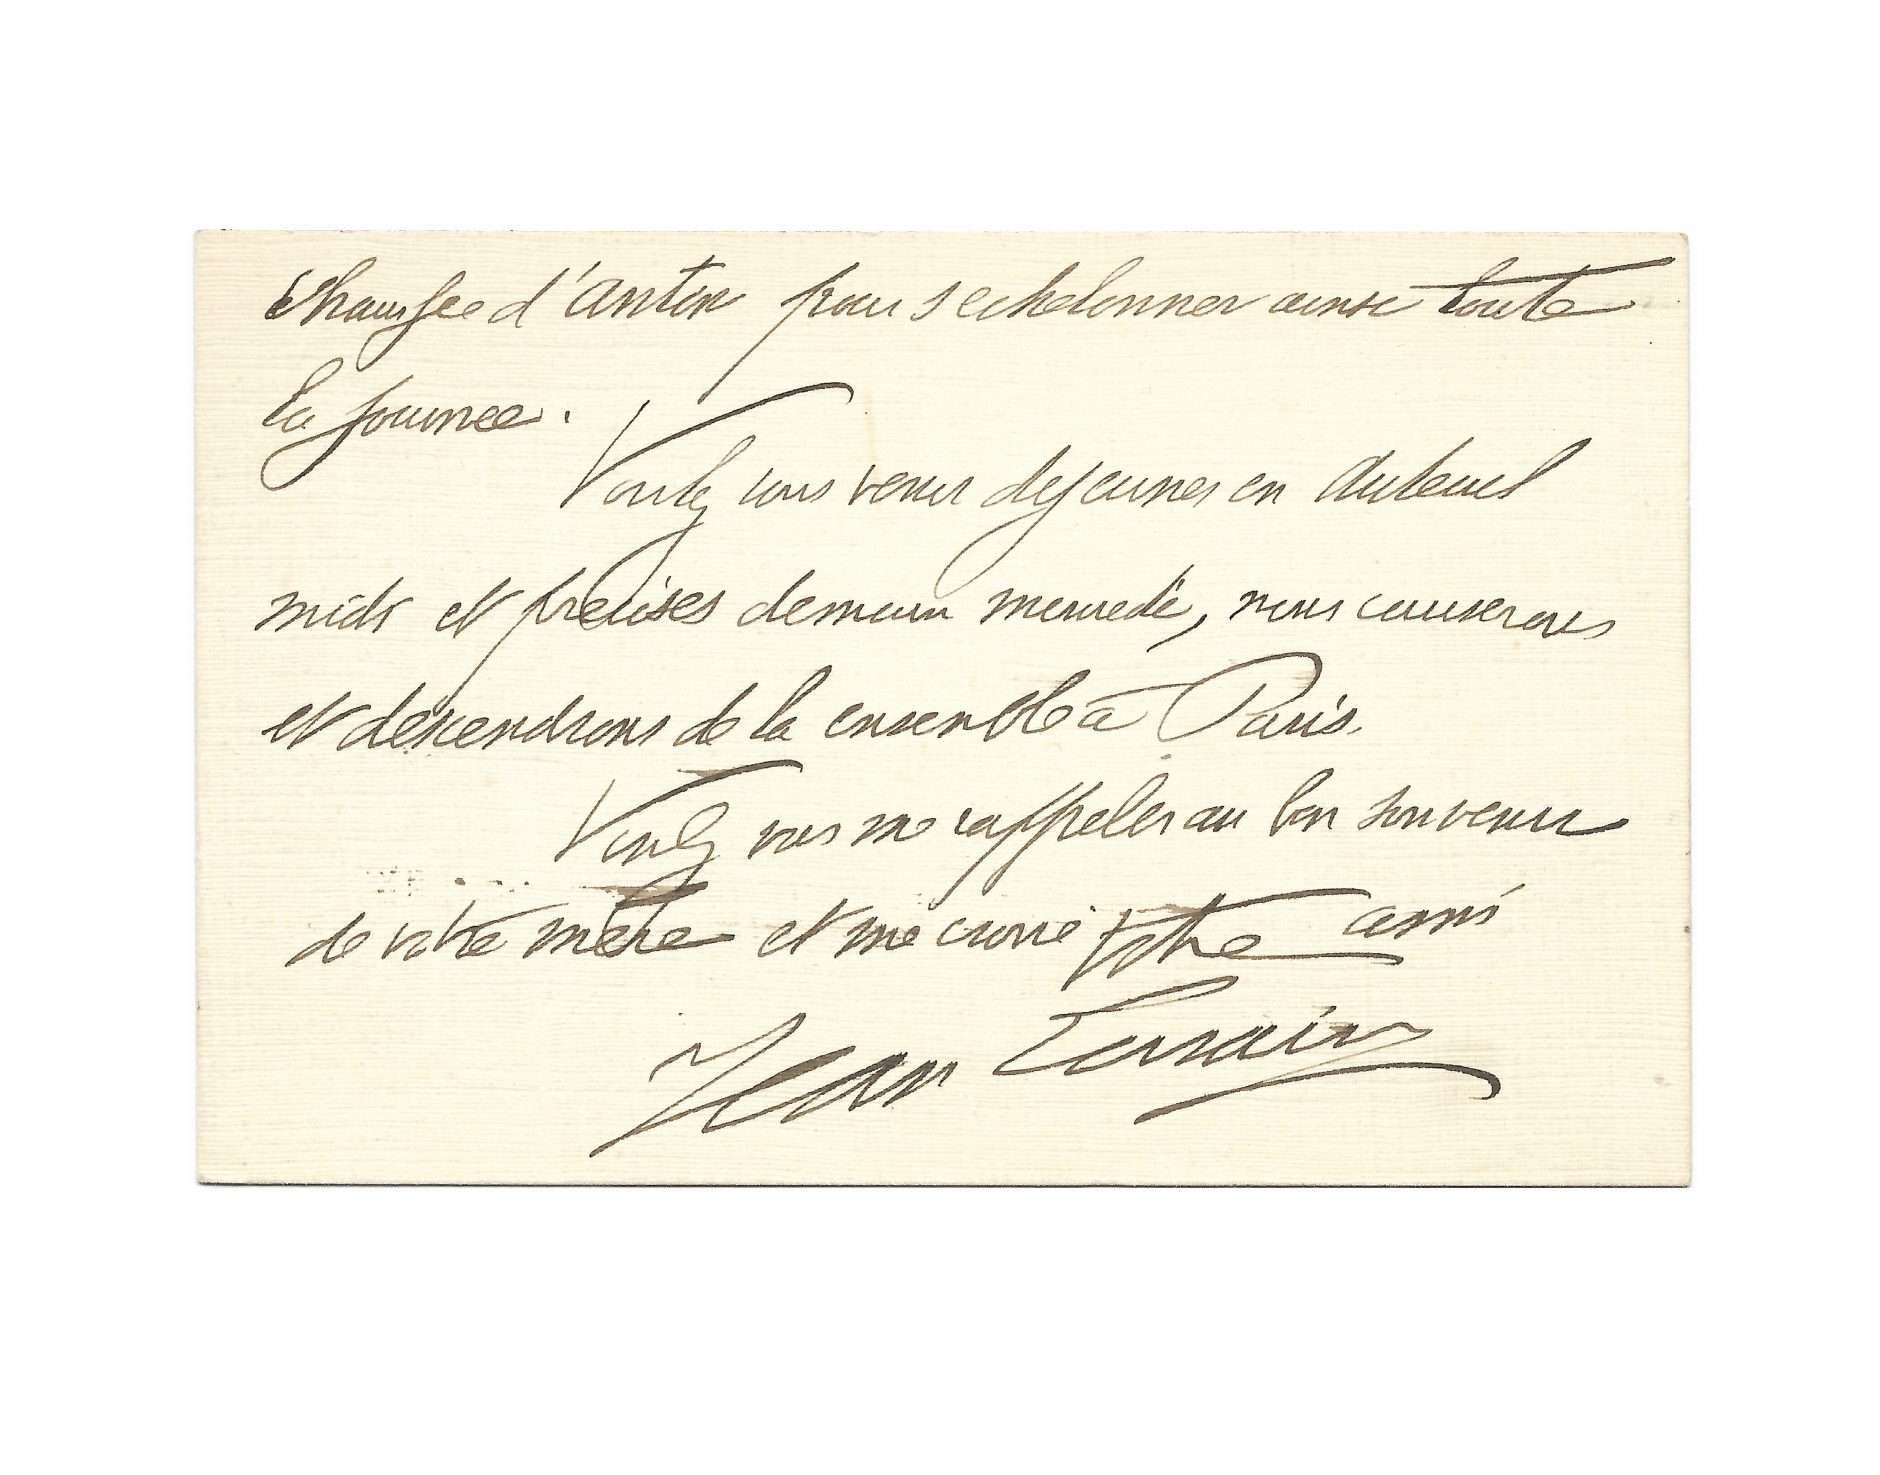 chaussée d'antin pour s echelonner ainsi toute
la journee.
Voulez vous venir dejeuner en Auteuil
midi et precises demain mercredi, nous causerons
et descendrons de la ensemble à Paris.
Voulez vous me rappeler au bon souvenir
de votre mère et me croire votre ami
Jean Lorrain